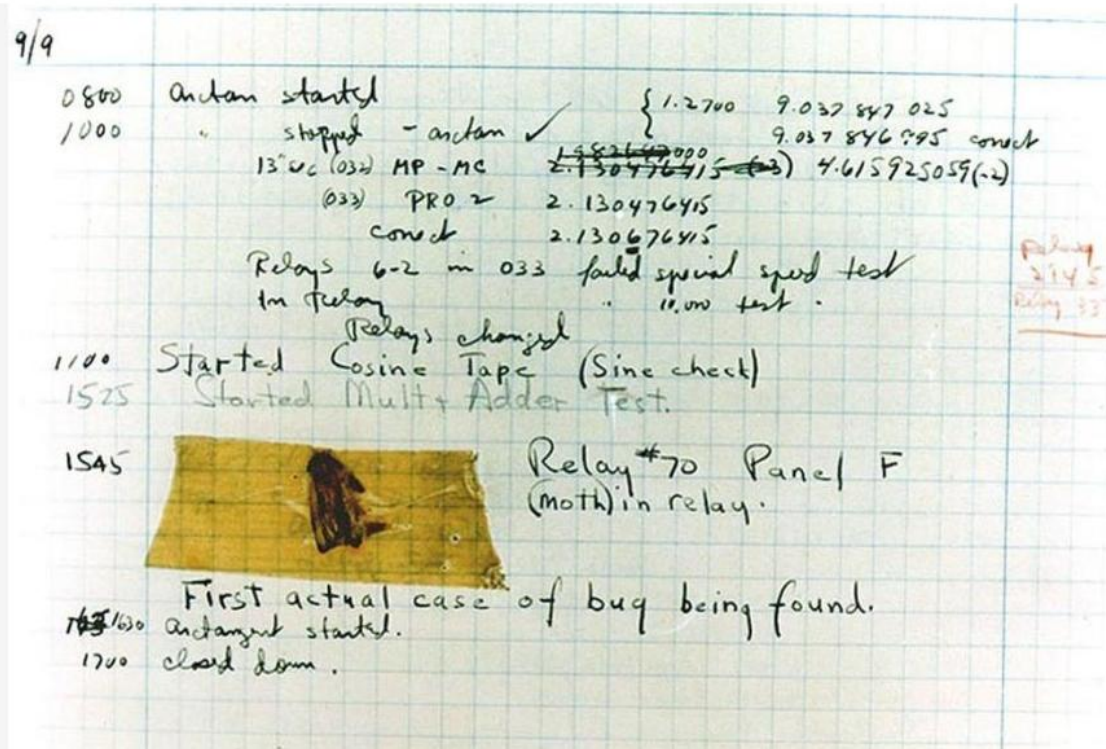 9/9
0800 arctan started { 1.2700 9.037 847 025
1000 " stopped - arctan ✓ { 9.037 846 995 correct
13" uc (032) MP - MC 2.130476415 (-3) 4.615925059(-2)
(033) PRO 2 2.130476415
correct 2.130676415
Relays 6-2 in 033 failed special speed test
In Relay " 10.000 test .
Relays changed
Relay
2145
Relay 33
1100 Started Cosine Tape (Sine check)
1525 Started Mult + Adder Test.
1545 Relay #70 Panel F
(moth) in relay.
First actual case of bug being found.
1630 arctangent started.
1700 closed down.